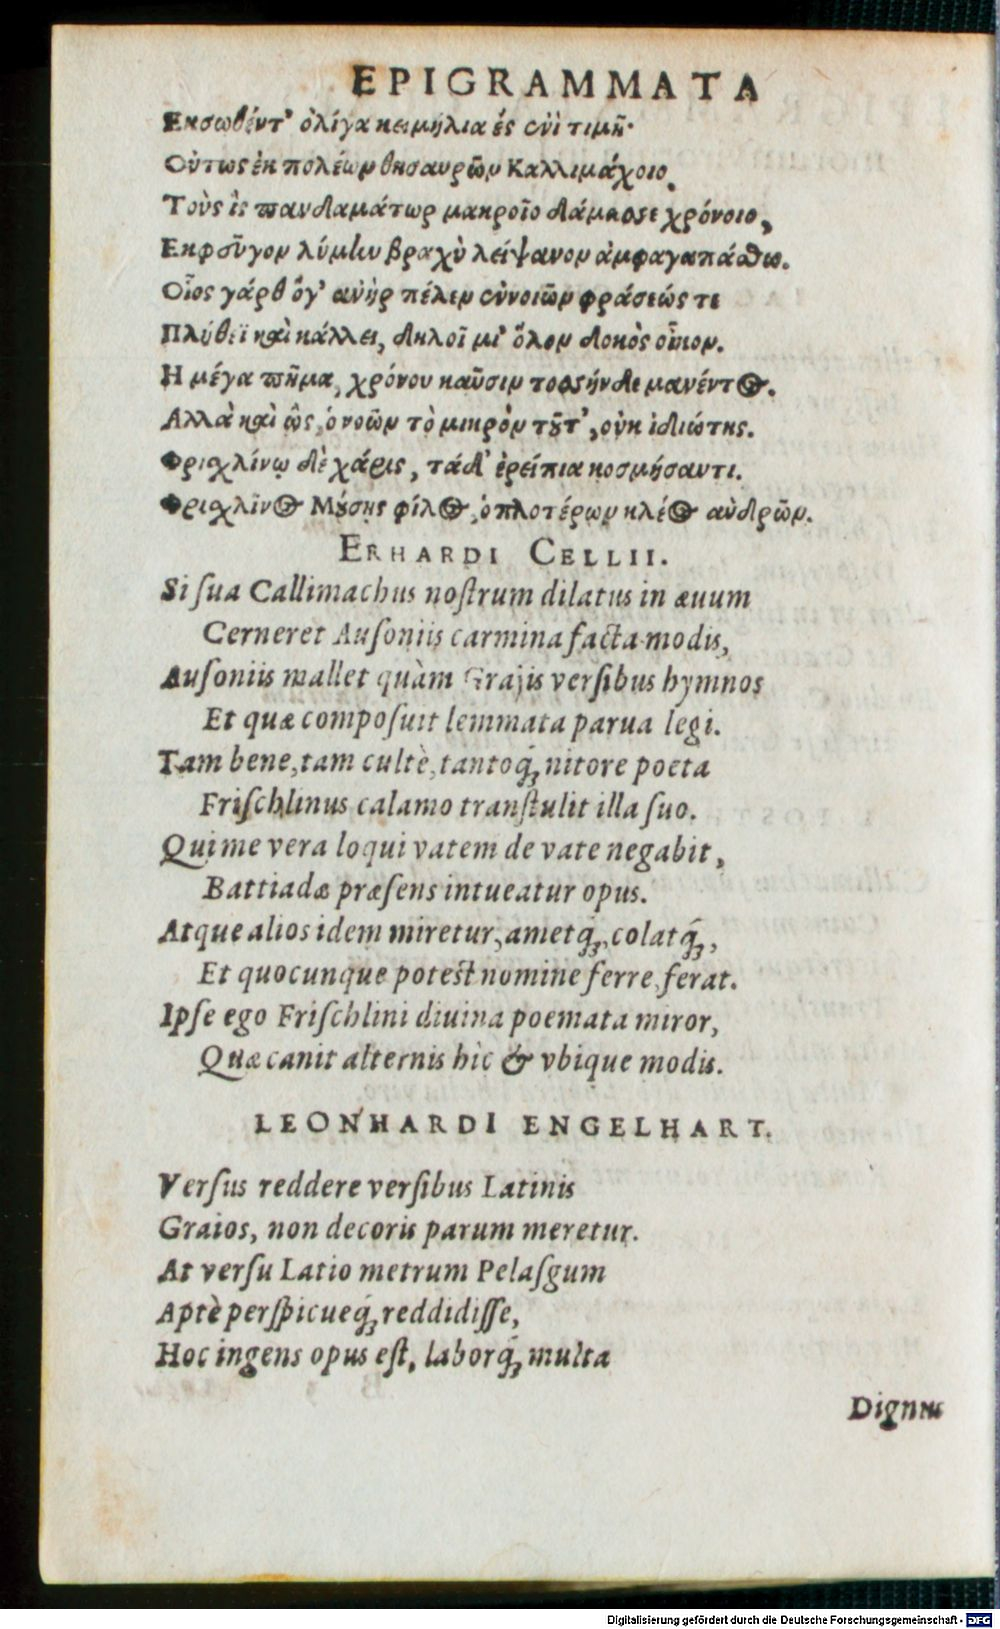 EPIGRAMMATA
Εκσωθέντ' ὀλίγα κειμήλια ἐς ἐνὶ τιμῇ·
Οὕτως ἐκ πολέων θησαυρῶν Καλλιμάχοιο,
Τοὺς ἲς πανδαμάτωρ μακροῖο δάμασσε χρόνοιο,
Εκφεῦγον λύμην βραχὺ λείψανον ἀμφαγαπάσθω.
Οἷος γάρ θ' ὅγ' ἀνὴρ πέλεν ἐννοιῶν φράσεώς τε
Πλήθεϊ καὶ κάλλει, δηλοῖ μι' ὅλον δοκὸς οἶκον.
Η μέγα πῆμα, χρόνου καῦσιν τοσήνδε μανέντος.
Αλλὰ καὶ ὣς, ὁ νοῶν τὸ μικρὸν τοῦτ', οὐκ ἰδιώτης.
Φρισχλίνῳ δὲ χάρις, τάδ' ἐρείπια κοσμήσαντι.
Φρισχλῖνος Μούσης φίλος, ὁπλοτέρων κλέος ἀνδρῶν.
ERHARDI CELLII.
Si ſua Callimachus noſtrum dilatus in æuum
Cerneret Auſoniis carmina facta modis,
Auſoniis mallet quàm Grajis verſibus hymnos
Et quæ compoſuit lemmata parua legi.
Tam bene, tam cultè, tantoq́ꝫ nitore poeta
Friſchlinus calamo tranſtulit illa ſuo.
Qui me vera loqui vatem de vate negabit,
Battiadæ præſens intueatur opus.
Atque alios idem miretur, ametq́ꝫ, colatq́ꝫ,
Et quocunque poteſt nomine ferre, ferat.
Ipſe ego Friſchlini diuina poemata miror,
Quæ canit alternis hìc & vbique modis.
LEONHARDI ENGELHART.
Verſus reddere verſibus Latinis
Graios, non decoris parum meretur.
At verſu Latio metrum Pelaſgum
Aptè perſpicueq́ꝫ reddidiſſe,
Hoc ingens opus eſt, laborq́ꝫ multa
Dignus
Digitalisierung gefördert durch die Deutsche Forschungsgemeinschaft - DFG